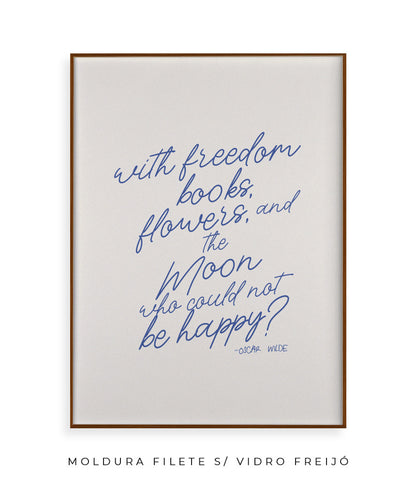 with freedom
books,
flowers, and
the
Moon
who could not
be happy?
-OSCAR WILDE
MOLDURA FILETE S/ VIDRO FREIJÓ